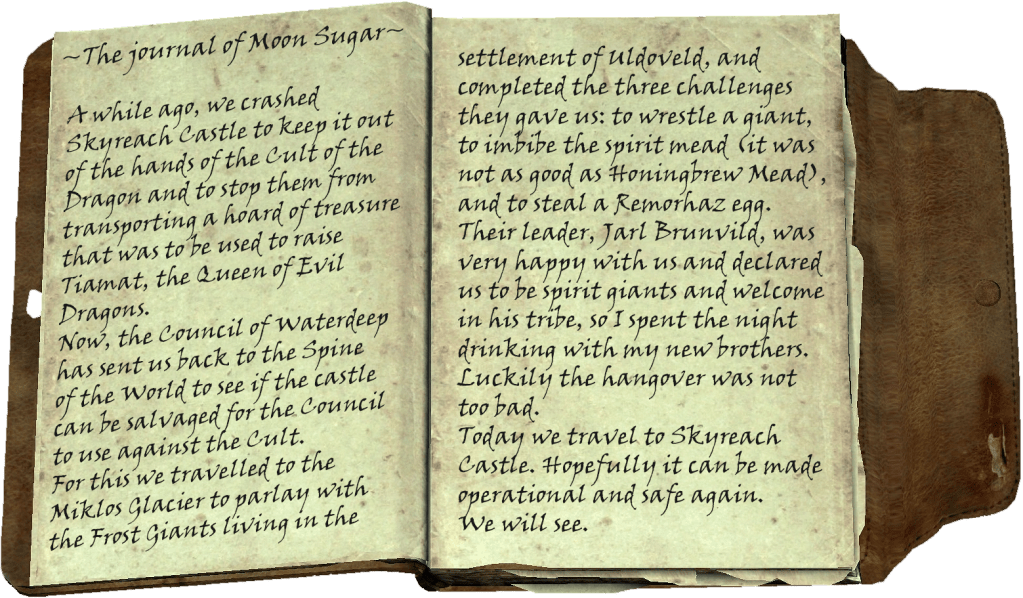 ~The journal of Moon Sugar~
A while ago, we crashed
Skyreach Castle to keep it out
of the hands of the Cult of the
Dragon and to stop them from
transporting a hoard of treasure
that was to be used to raise
Tiamat, the Queen of Evil
Dragons.
Now, the Council of Waterdeep
has sent us back to the Spine
of the World to see if the castle
can be salvaged for the Council
to use against the Cult.
For this we travelled to the
Miklos Glacier to parlay with
the Frost Giants living in the
settlement of Uldoveld, and
completed the three challenges
they gave us: to wrestle a giant,
to imbibe the spirit mead (it was
not as good as Honingbrew Mead),
and to steal a Remorhaz egg.
Their leader, Jarl Brunvild, was
very happy with us and declared
us to be spirit giants and welcome
in his tribe, so I spent the night
drinking with my new brothers.
Luckily the hangover was not
too bad.
Today we travel to Skyreach
Castle. Hopefully it can be made
operational and safe again.
We will see.